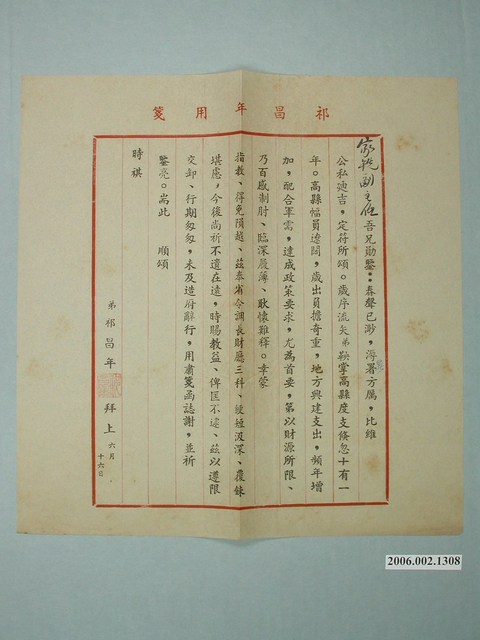 祁昌年用箋
副主任吾兄勛鑒：春聲已渺，溽署方厲，比維
公私迪吉，定符所頌。歲序流矢弟鞅掌高縣度支倏忽十有一
年。高縣幅員遼闊，歲出負擔奇重，地方興建支出，頻年增
加，配合軍需，達成政策要求，尤為首要，第以財源所限、
乃百感制肘、臨深履薄、耿懷難釋。幸蒙
指教、得免隕越、茲奉省令調長財廳三科、綆短汲深、覆餗
堪慮，今後尚祈不遺在遠，時賜教益、俾匡不逮、茲以遵限
交卸、行期匆匆，未及造府辭行，用肅箋函誌謝，並祈
鑒亮。耑此　順頌
時祺
弟祁昌年拜上六月十六日
2006.002.1308